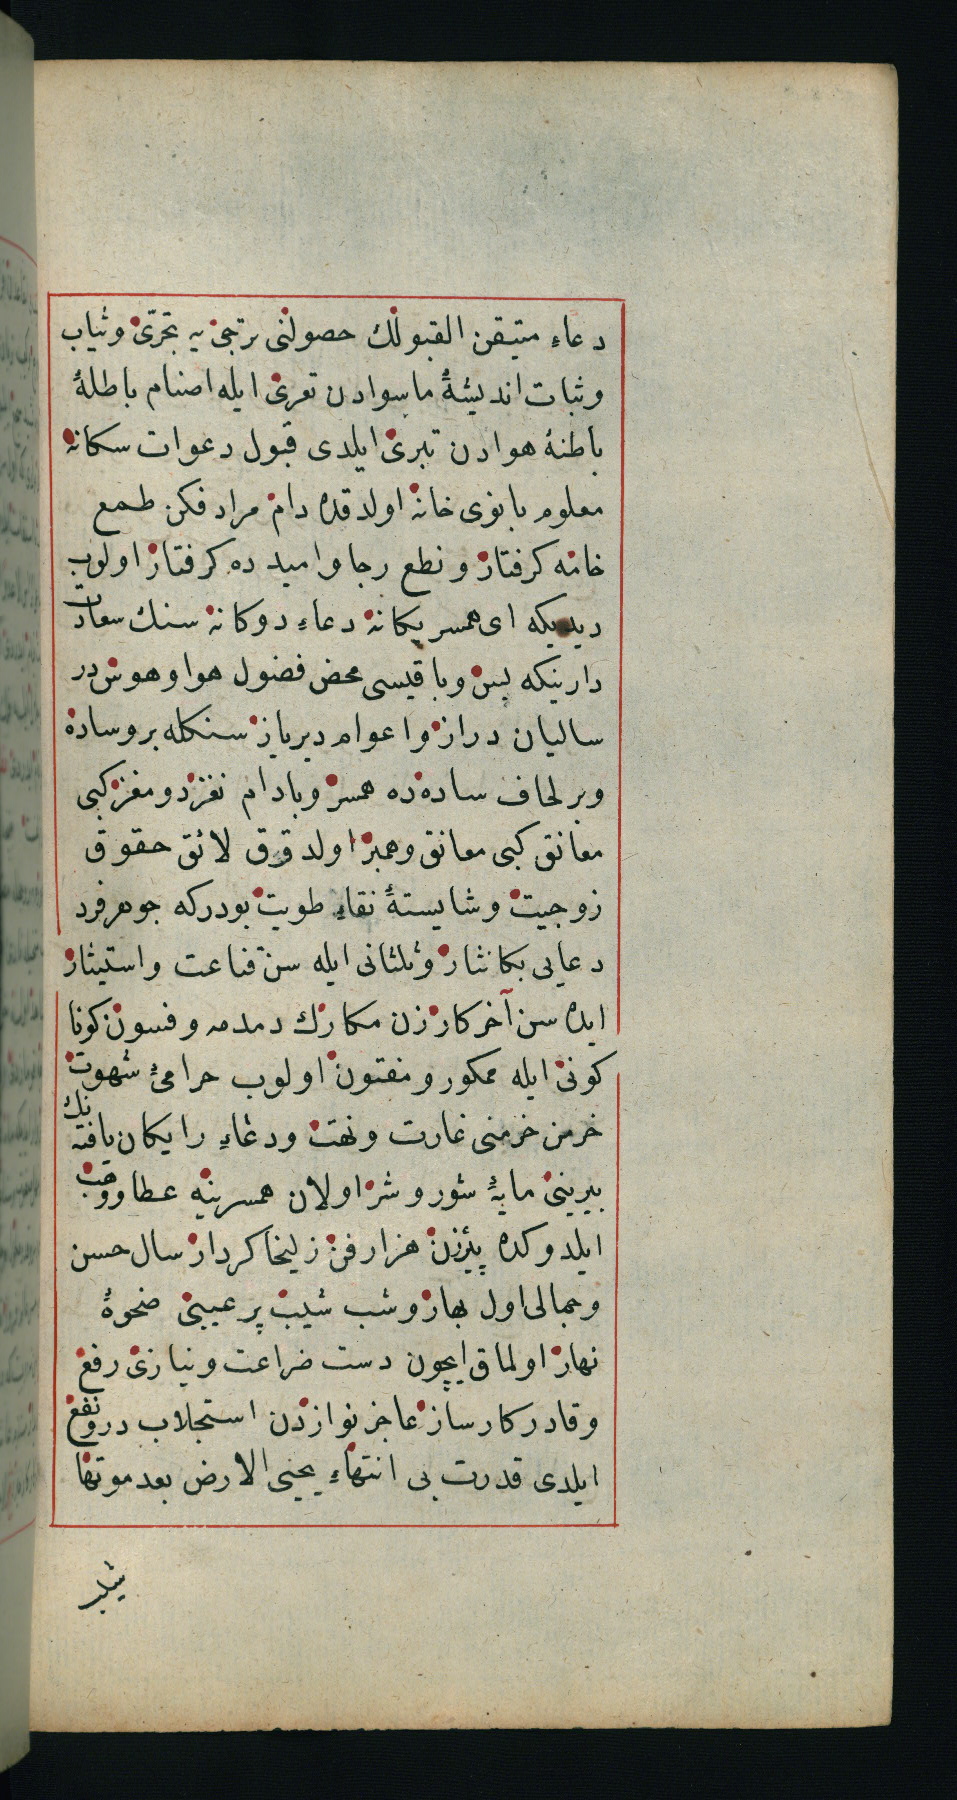 دعاء متیقن القبولك حصولنی ترجی یه تجری وثیاب
وثبات اندیشهٔ ماسوادن تعری ایله اصنام باطلهٔ
باطنهٔ هوادن تبری ایلدی قبول دعوات سكانه
معلوم بانوی خانه اولدقده دام مراد فكن طمع
خامه كرفتار ونطع رجا وامیده كرفتار اولوب
دیدیكه ای همسر یكانه دعاء دوكانه سنك سعادت
دارینكه بس وباقیسی محض فضول هوا وهوس در
سالیان دراز واعوام دیریاز سنكله بر وساده
وبر لحاف ساده ده همسر وبادام نغز دومغز كبی
معانق كبی معانق وهمبر اولدوق لائق حقوق
زوجیت وشایستهٔ نقاء طویت بودركه جوهر فرد
دعایی بكا نثار وثلثانی ایله سن قناعت واستیثار
ایده سن آخر كار زن مكارك دمدمه وفسون كونا
كونی ایله ممكور ومفتون اولوب حرامئ شهوت
خرمن خرمنی غارت ونهت ودعاء رایكان یافته نك
بیرینی مایهٔ شور وشر اولان همسرینه عطا ووهب
ایلدوكده پیرزن هزار فن زلیخا كردار سال حسن
وجمالی اول بهار وشب شیب پر عیبی ضحوهٔ
نهار اولماق ایچون دست ضراعت ونیازی رفع
وقادر كارساز عاجز نوازدن استجلاب درو نفع
ایلدی قدرت بی انتهاء یحیی الارض بعد موتها
شیب